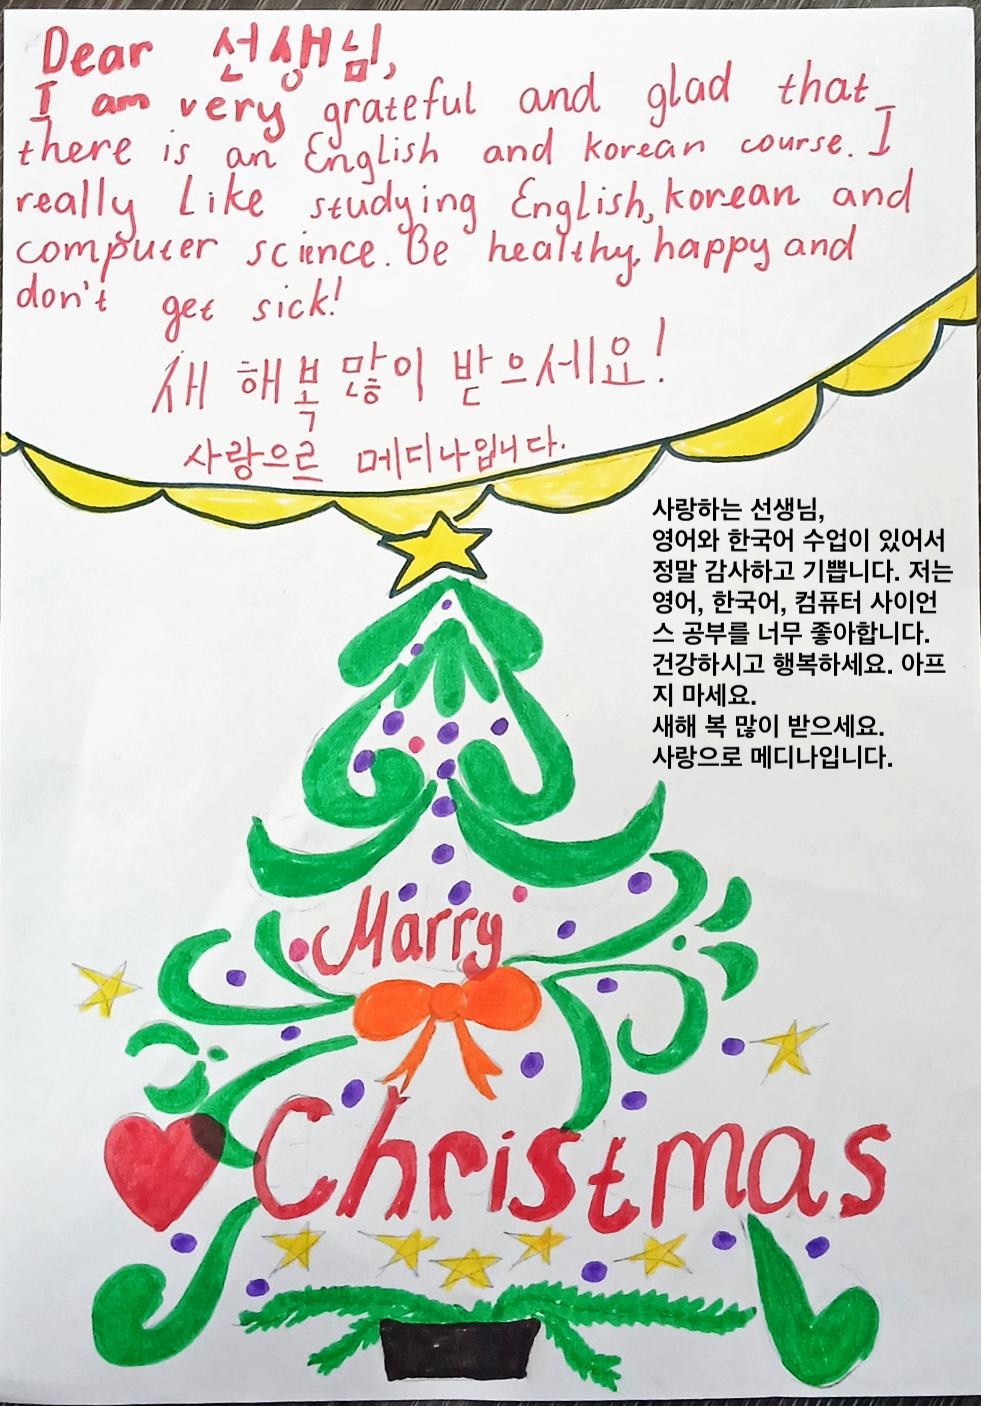 Dear 선생님,
I am very grateful and glad that
there is an English and korean course. I
really Like studying English, korean and
computer science. Be healthy, happy and
don't get sick!
새 해 복 많이 받으세요!
사랑으르 메디나입니다.
사랑하는 선생님,
영어와 한국어 수업이 있어서
정말 감사하고 기쁩니다. 저는
영어, 한국어, 컴퓨터 사이언
스 공부를 너무 좋아합니다.
건강하시고 행복하세요. 아프
지 마세요.
새해 복 많이 받으세요.
사랑으로 메디나입니다.
Marry
Christmas